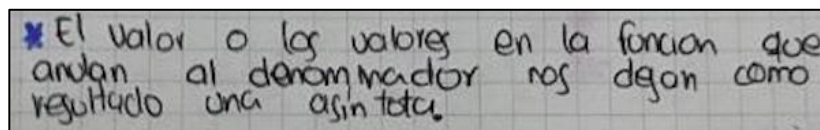 * El valor o los valores en la funcion que
anulan al denominador nos dejan como
resultado una asintota.